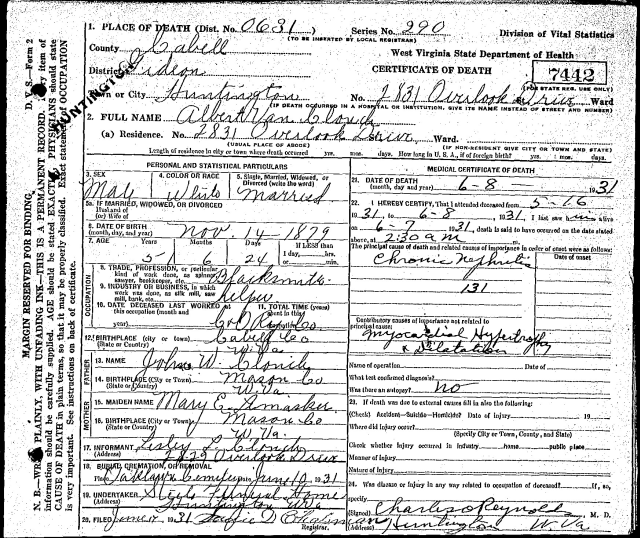 1. PLACE OF DEATH (Dist. No. 0631 Series No. 990 Division of Vital Statistics
(TO BE INSERTED BY LOCAL REGISTRAR)
County Cabell West Virginia State Department of Health
District Gideon CERTIFICATE OF DEATH 7442
(FOR STATE REG. USE ONLY)
Town or City Huntington No. 2831 Overlook Drive Ward
(IF DEATH OCCURRED IN A HOSPITAL OR INSTITUTION, GIVE ITS NAME INSTEAD OF STREET AND NUMBER)
HUNTINGTON
2. FULL NAME Albert Van Clonch
(a) Residence. No. 2831 Overlook Drive Ward.
(USUAL PLACE OF ABODE) (IF NON-RESIDENT GIVE CITY OR TOWN AND STATE)
Length of residence in city or town where death occurred yrs. mos. ds. How long in U. S. A., if of foreign birth? yrs. mos. ds.
PERSONAL AND STATISTICAL PARTICULARS
3. SEX 4. COLOR OR RACE 5. Single, Married, Widowed, or Divorced (write the word)
Male White Married
5a. IF MARRIED, WIDOWED, OR DIVORCED
Husband of
(or) Wife of
6. DATE OF BIRTH
(month, day, and year) Nov 14-1879
7. AGE Years Months Days If LESS than 1 day,
51 6 24 hrs. or min.
OCCUPATION
8. TRADE, PROFESSION, or particular kind of work done, as spinner, sawyer, bookkeeper, etc. Blacksmith
9. INDUSTRY OR BUSINESS, in which work was done, as silk mill, saw mill, bank, etc. helper
10. DATE DECEASED LAST WORKED at this occupation (month and year) 11. TOTAL TIME (years) spent in this occupation
12. BIRTHPLACE (city or town) Cabell Co
(State or Country) W. Va.
FATHER
13. NAME John W. Clonch
14. BIRTHPLACE (City or Town) Mason Co
(State or Country) W. Va
MOTHER
15. MAIDEN NAME Mary E.
16. BIRTHPLACE (City or Town) Mason Co
(State or Country) W. Va.
17. INFORMANT Lesley L. Clonch
(Address) 2829 Overlook Drive
18. BURIAL, CREMATION, OR REMOVAL
Cemetery June 10 1931
19. UNDERTAKER Steele Funeral Home
(Address) Huntington W. Va
20. FILED June 1931
Registrar.
MEDICAL CERTIFICATE OF DEATH
21. DATE OF DEATH
(month, day, and year) 6-8 1931
22. I HEREBY CERTIFY, That I attended deceased from 5-16
1931, to 6-8 1931. I last saw him alive
on 6-7 1931, death is said to have occurred on the date stated
above, at 2:30 a m.
The principal cause of death and related causes of importance in order of onset were as follows:
Date of onset
Chronic Nephritis
131
Contributory causes of importance not related to principal cause:
Myocardial Hypertrophy
& Dilatation
Name of operation Date of
What test confirmed diagnosis?
Was there an autopsy? no
23. If death was due to external causes fill in also the following:
(Check) Accident—Suicide—Homicide? Date of injury 19
Where did injury occur?
(Specify City or Town, County, and State)
Check whether injury occurred in industry home public place
Manner of Injury
Nature of Injury
24. Was disease or injury in any way related to occupation of deceased? If so, specify
(Signed) Charles Reynolds, M. D.
(Address) Huntington W. Va
MARGIN RESERVED FOR BINDING.
N. B.—WRITE PLAINLY, WITH UNFADING INK—THIS IS A PERMANENT RECORD. Every item of
information should be carefully supplied. AGE should be stated EXACTLY. PHYSICIANS should state
CAUSE OF DEATH in plain terms, so that it may be properly classified. Exact statement of OCCUPATION
is very important. See instructions on back of certificate.
D. V. S.—Form 2